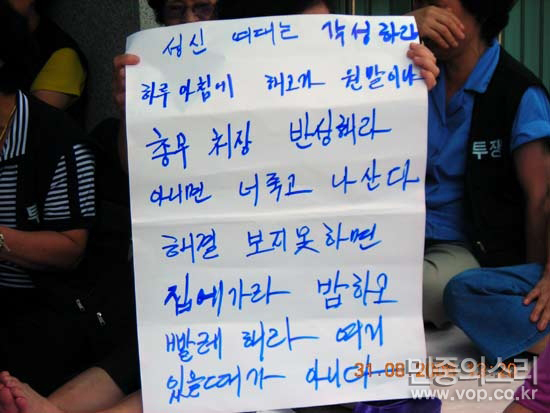 성신 여대는 각성하라
하루 아침에 해고가 원말이냐
총무 처장 반성해라
아니면 너죽고 나산다
해결 보지못하면
집에가라 밥하오
빨레 해라 여기
있을때가 아니다
투쟁
투
31.08.2
민중의소리
www.vop.co.kr